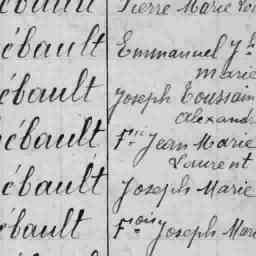 ébault Pierre Marie Lou
ébault Emmanuel Jh
Marie
ébault Joseph Toussain
Alexandr
ébault Fçis Jean Marie
Laurent
ébault Joseph Marie
ébault Fçois Joseph Mar